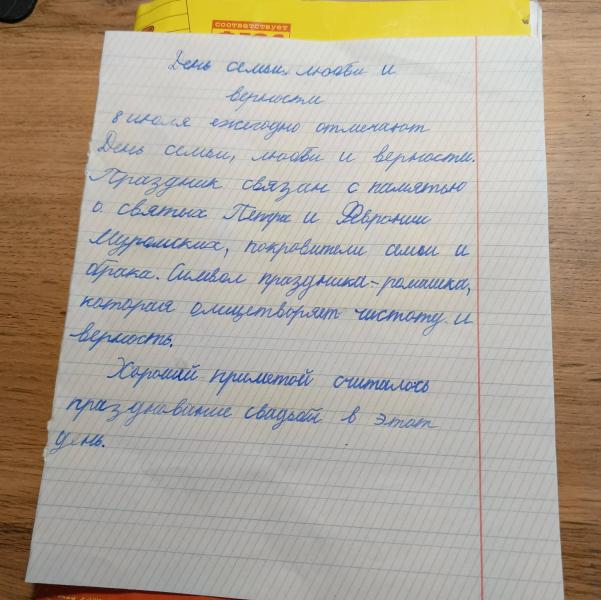 соответствует
День семьи, любви и
верности
8 июля ежегодно отмечают
День семьи, любви и верности.
Праздник связан с памятью
о святых Петра и Февронии
Муромских, покровители семьи и
брака. Символ праздника - ромашка,
которая олицетворяет чистоту и
верность.
Хорошей приметой считалось
празднование свадьбы в этот
день.